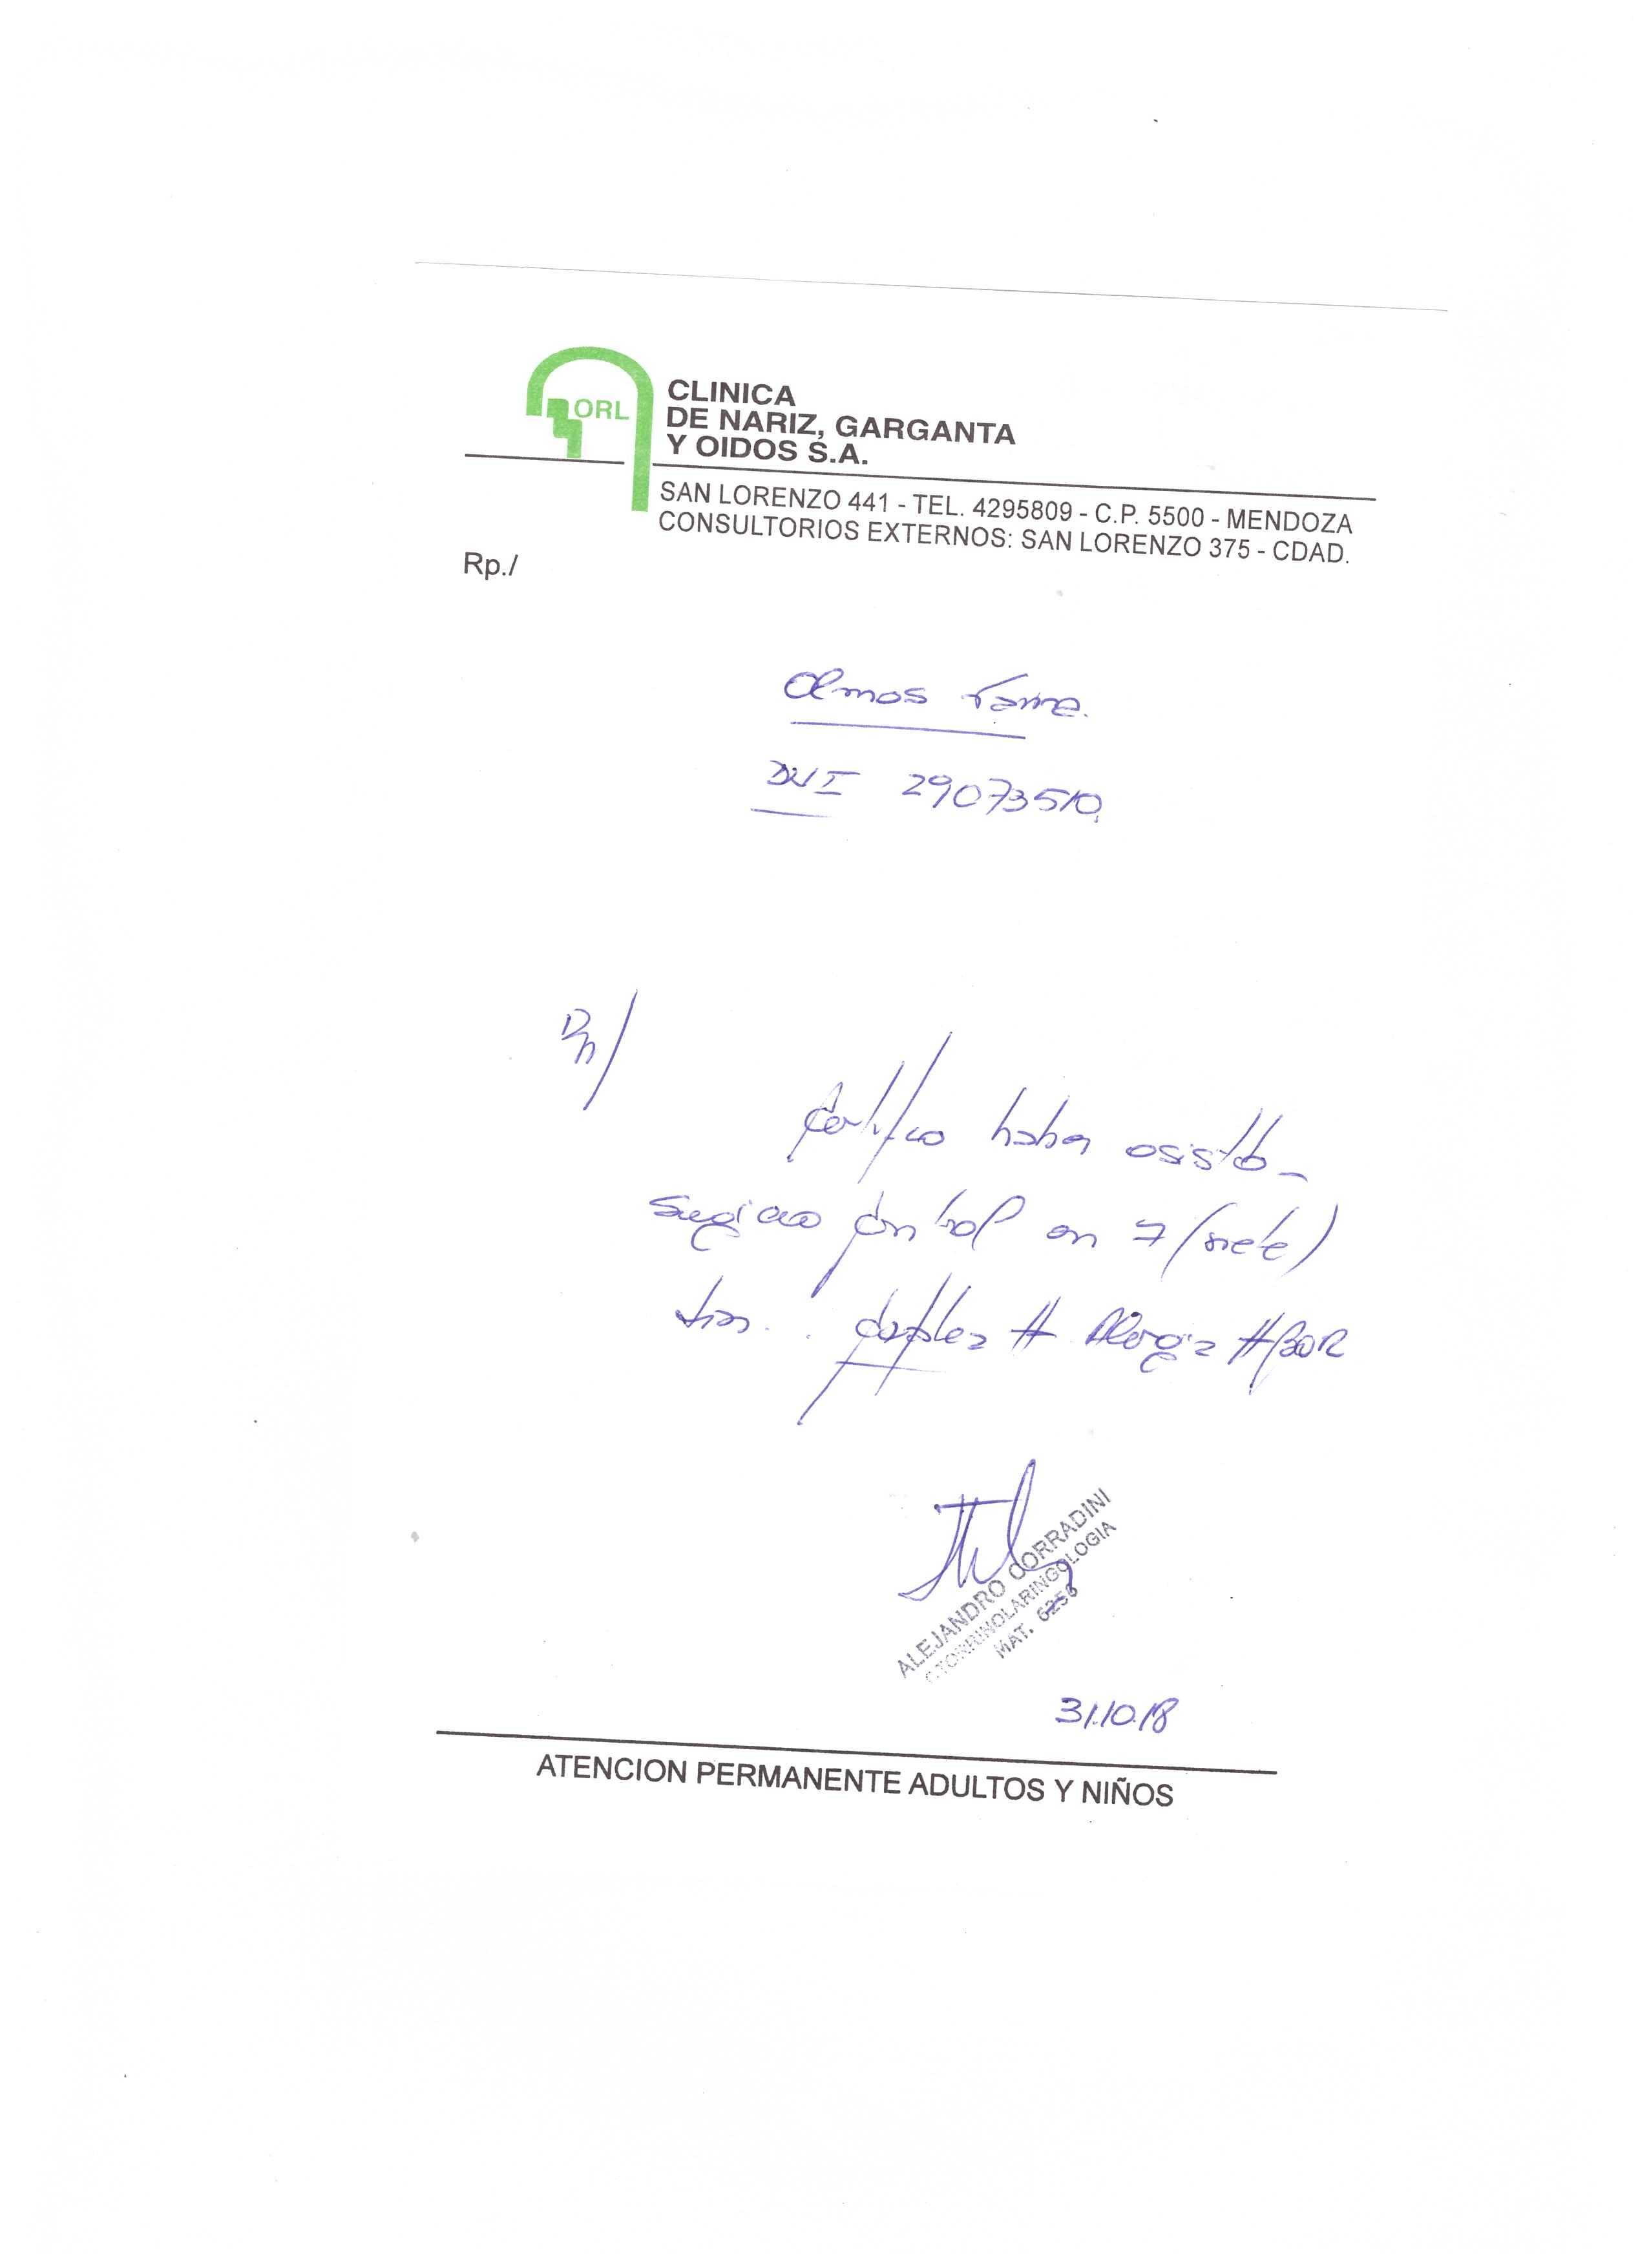 ORL
CLINICA
DE NARIZ, GARGANTA
Y OIDOS S.A.
SAN LORENZO 441 - TEL. 4295809 - C.P. 5500 - MENDOZA
CONSULTORIOS EXTERNOS: SAN LORENZO 375 - CDAD.
Rp./
Olmos
DNI 29073510
Certifico haber asistido
control en 7 (siete)
Alergia
ALEJANDRO CORRADINI
OTORRINOLARINGOLOGIA
MAT. 6256
31.10.18
ATENCION PERMANENTE ADULTOS Y NIÑOS